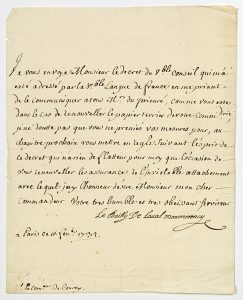 Je vous envoye Monsieur le decret du V.ble conseil qui m'a
esté adressé par la V.ble Langue de france en me priant
de le communiquer a tous M.rs du prieuré, comme vous estes
dans le cas de renouveller le papier terrier de votre Comm.drie
je ne doute pas que vous ne preniés vos mesures pour, au
chapitre prochain vous mettre en regle, suivant l'esprit de
ce decret qui n'a rien de flateur pour moy que l'occasion de
vous renouveller les assurances de l'inviolable attachement
avec lequel j'ay l'honneur d'estre Monsieur mon cher
Commandeur Votre tres humble et tres obeissant serviteur
Le Bailly De Laval montmorency
a Paris ce